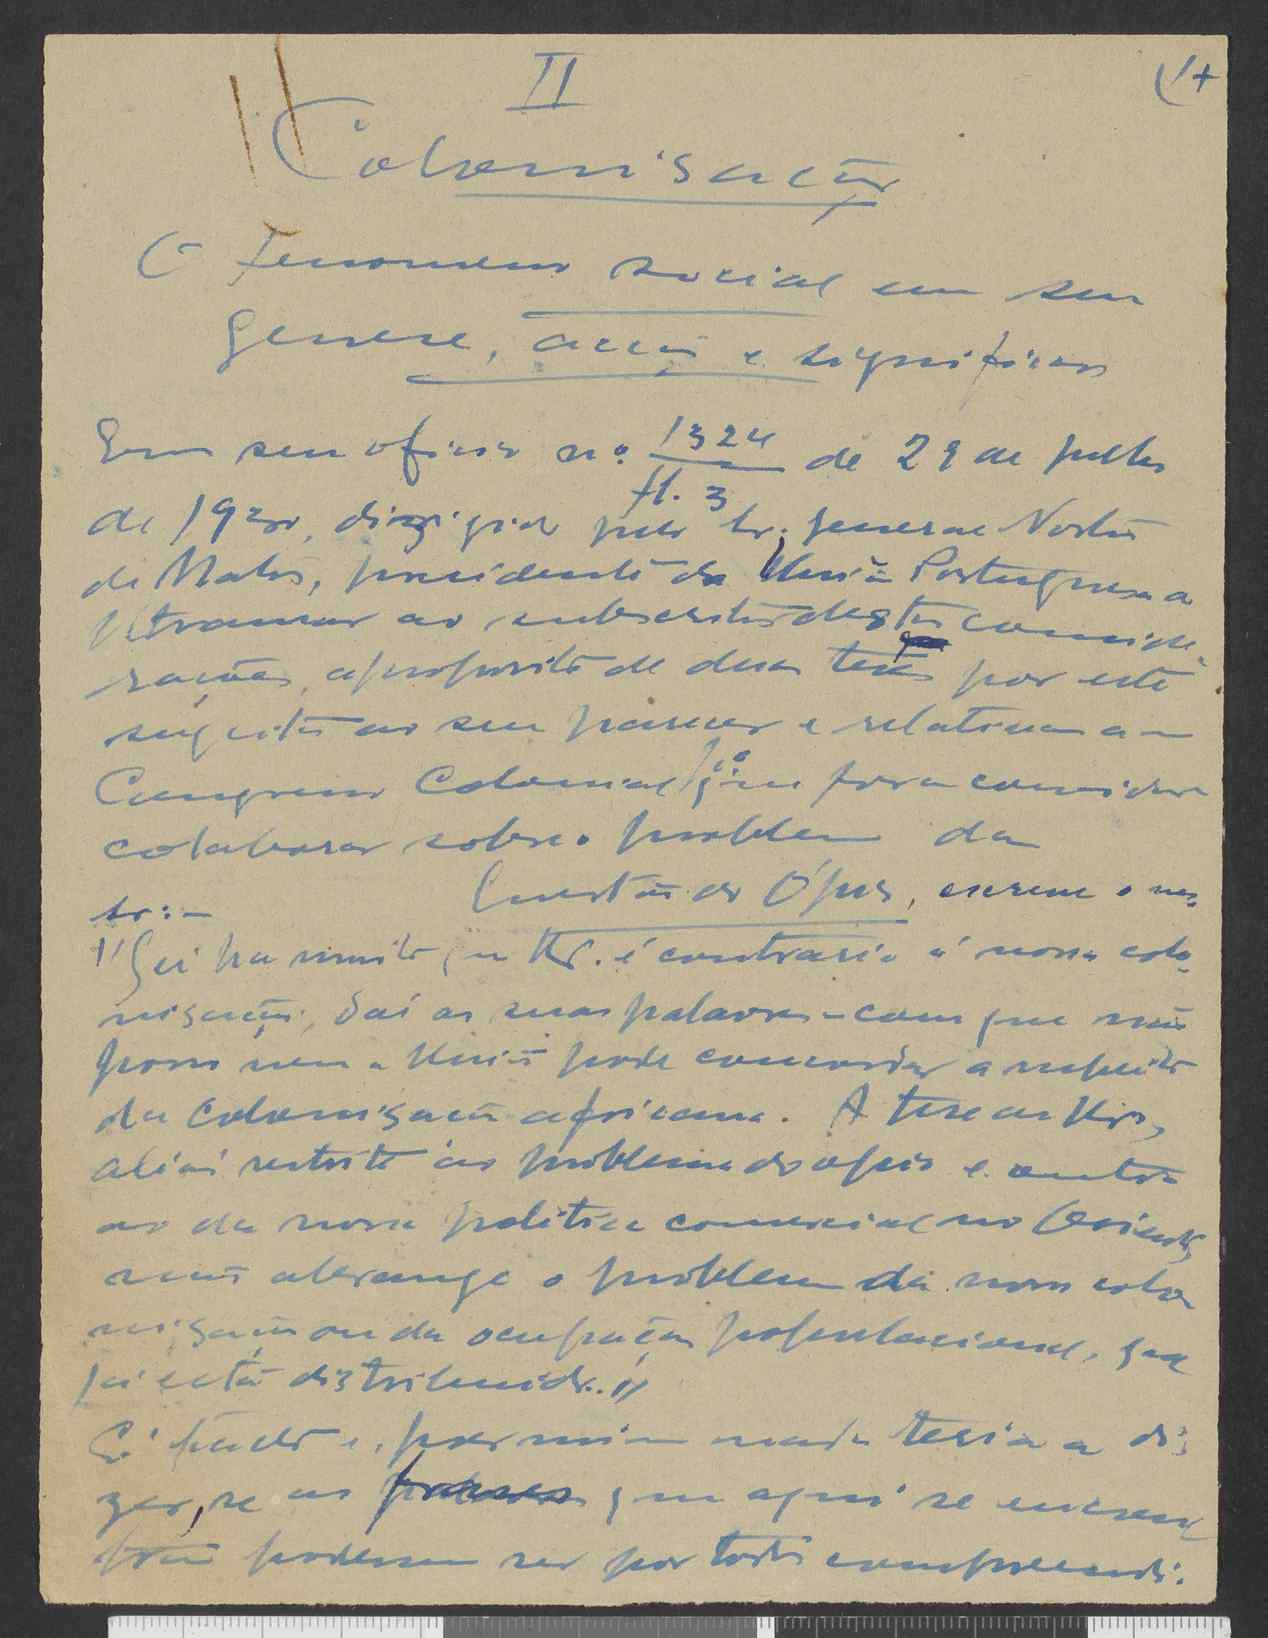 II
Colonisação
O fenomeno social em seu
genese, acção e significão
Em seu oficio nº 1324 de 29 de julho
fl. 3
de 19 dirigido pelo Sr. general Norton
de Matos, presidente da União Portuguesa
ao subscritor destas conside
rações, a proposito de duas teses por este
sugeritas ao seu parecer e relativas a
Congresso Colonial que fora convidado
colaborar sobre o problema da
Questão do Ópio, escreve o mes
"Sei ha muito que V. é contrario á nossa colo
nisação, daí as suas palavras com que não
posso nem a União pode concordar a respeito
da colonisação africana. A tese de V.,
aliás restrita ao problema do opio e outra
ao da nossa politica comercial no Oriente,
não abrange o problema da nossa colo
nisação ou da ocupação populacional, que
já está distribuido."
É tudo e, por mim nada teria a di
zer, se as que aqui se
podessem ser por todos compreendi.